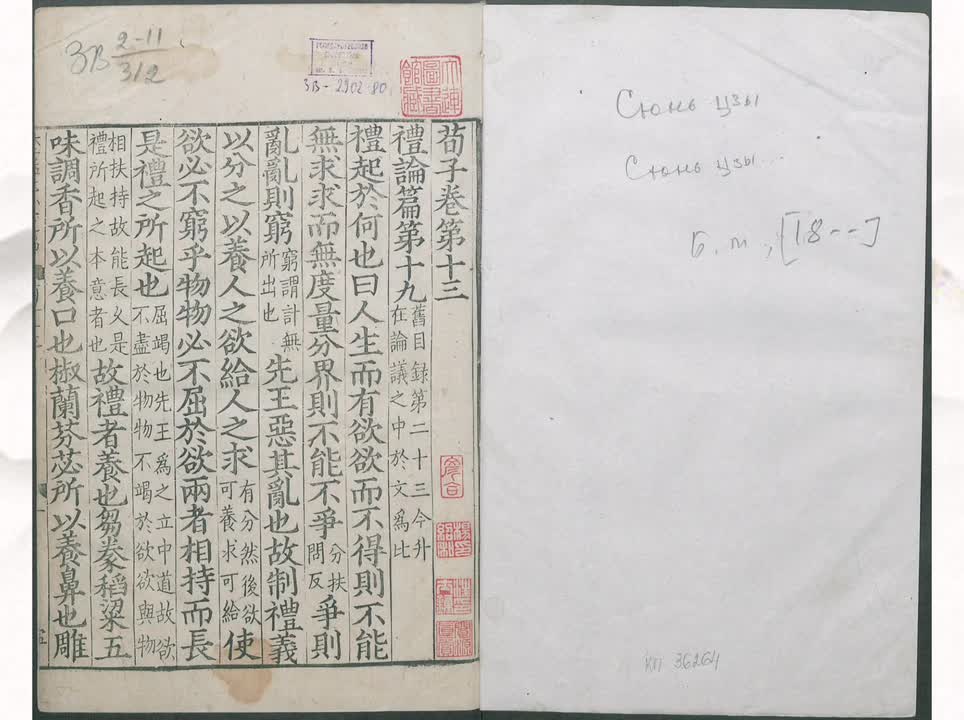 3В 2-11/312
3В-2902-80
大連圖書館藏
荀子卷第十三
禮論篇第十九 舊目録第二十三今升在論議之中於文爲比
禮起於何也曰人生而有欲欲而不得則不能
無求求而無度量分界則不能不爭 分扶問反 爭則
亂亂則窮 窮謂計無所出也 先王惡其亂也故制禮義
以分之以養人之欲給人之求 有分然後欲可養求可給 使
欲必不窮乎物物必不屈於欲兩者相持而長
是禮之所起也 屈竭也先王爲之立中道故欲不盡於物物不竭於欲欲與物
相扶持故能長乆是禮所起之本意者也 故禮者養也芻豢稻粱五
味調香所以養口也椒蘭芬苾所以養鼻也雕
Сюнь цзы
Сюнь цзы...
Б. м., [18--]
КП 36264